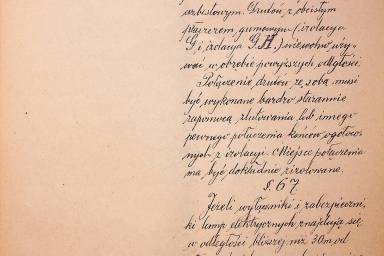 azbestowym. Drutów z obcisłym
płaszczem gumowym (izolacja
G, i, izolacja S.H.) niewolno uży-
wać w obrębie powyższych odległości.
Połączenie drutów ze sobą musi
być wykonane bardzo starannie
zapomocą zlutowania lub innego
pewnego połączenia końców, ogołoco-
nych z izolacyi. Miejsce połączenia
ma być dokładnie izolowane.
§. 67.
Jeżeli wyłączniki i zabezpieczni-
ki lamp elektrycznych znajdują się
w odległości bliższej niż 30 m od